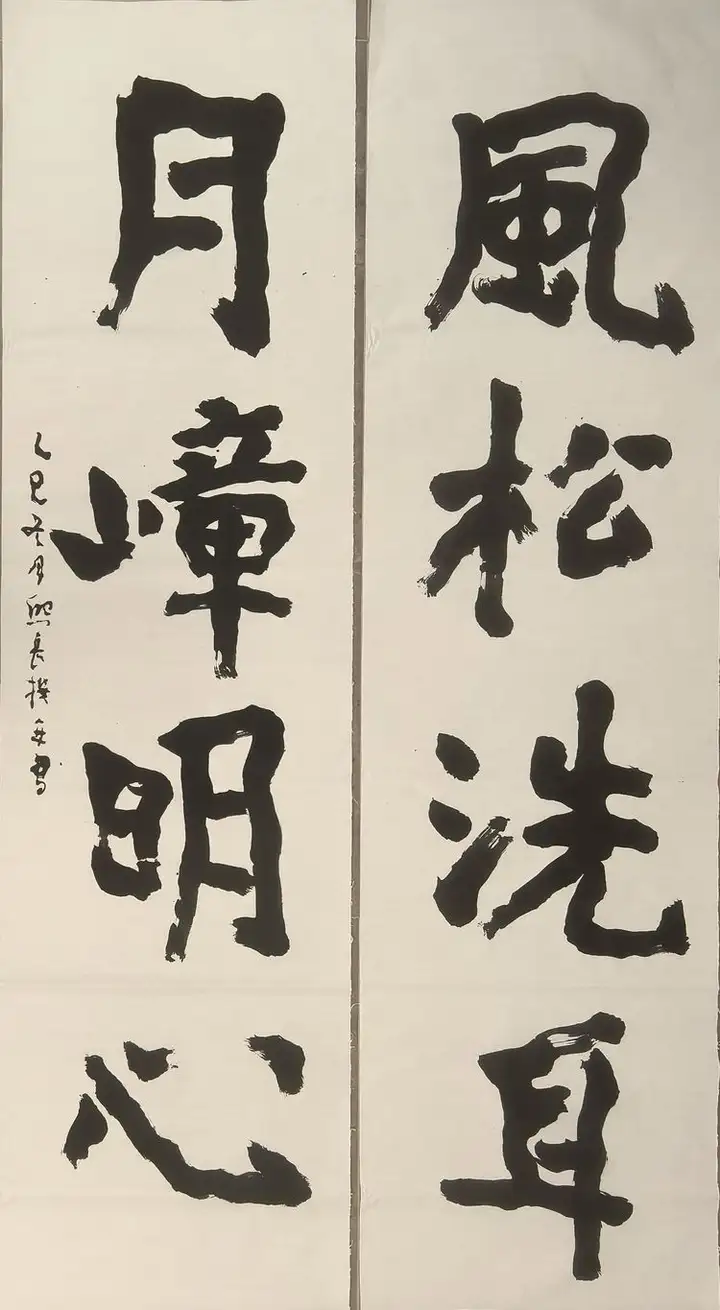 風松洗耳
月嶂明心
乙巳冬月熙長撰并書